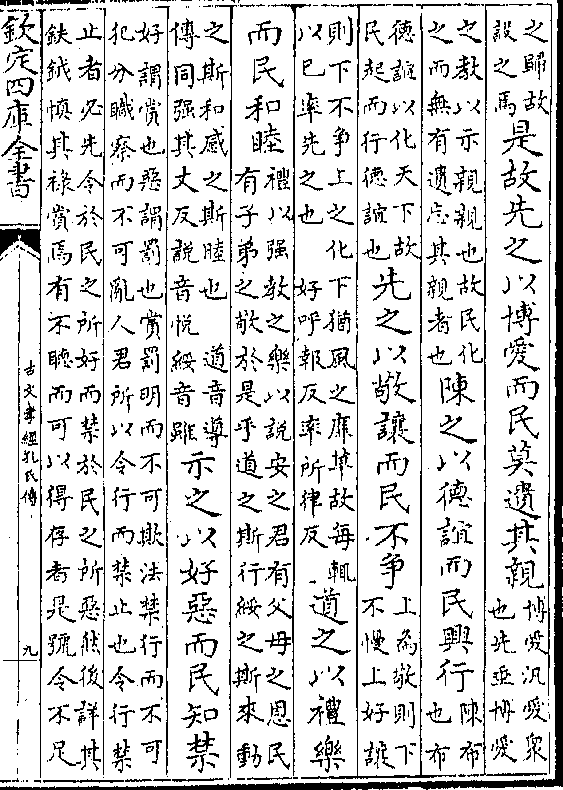 之歸故
設之焉
是故先之以博愛而民莫遺其親
博愛汎愛衆
也先垂博愛
之教以示親親也故民化
之而無有遺忘其親者也
陳之以德誼而民興行
陳布
也布
德誼以化天下故
民起而行德誼也
先之以敬讓而民不爭
上為敬則下
不慢上好讓
則下不爭上之化下猶風之靡草故每輒
以已率先之也 好呼報反率所律反
道之以禮樂
而民和睦
禮以强教之樂以說安之君有父母之恩民
有子弟之敬於是乎道之斯行綏之斯來動
之斯和感之斯睦也 道音導
傳同强其丈反說音悅綏音雖
示之以好惡而民知禁
好謂賞也惡謂罰也賞罰明而不可欺法禁行而不可
犯分職察而不可亂人君所以令行而禁止也令行禁
止者必先令於民之所好而禁於民之所惡然後詳其
鈇鉞慎其祿賞焉有不聽而可以得存者是號令不足
欽定四庫全書
古文孝經孔氏傳
九